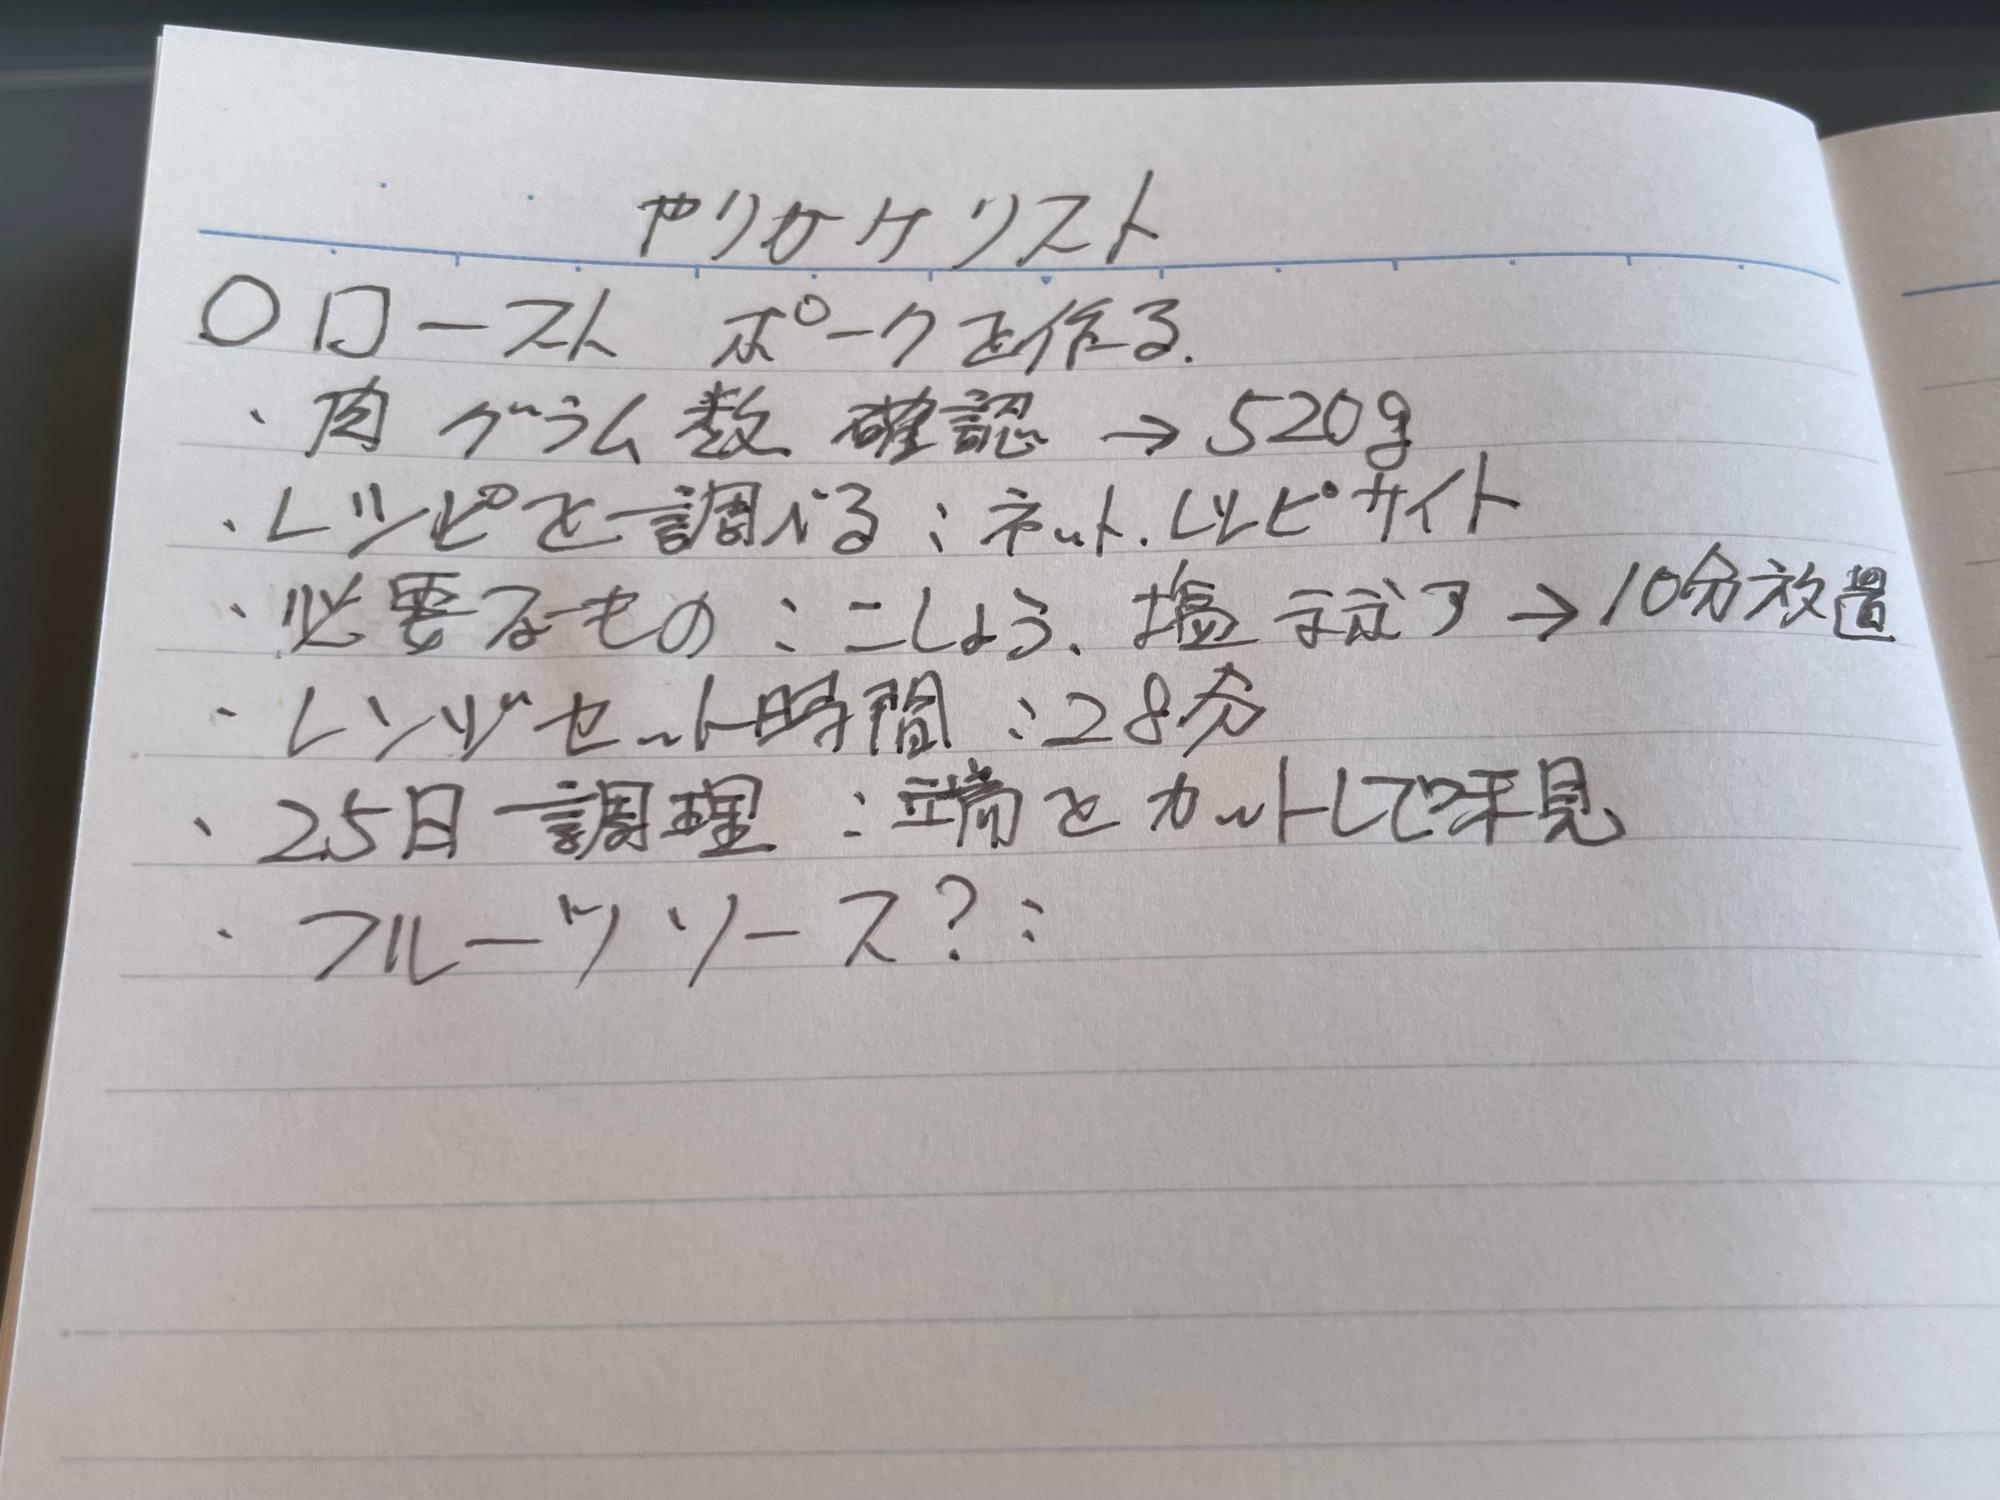 やりかけリスト
○ロースト ポークを作る.
・肉 グラム数 確認 → 520g
・レシピを調べる：ネット.レシピサイト
・必要なもの：こしょう、塩 →10分放置
・レンジセット時間：28分
・25日 調理：端をカットして味見
・フルーツソース?：